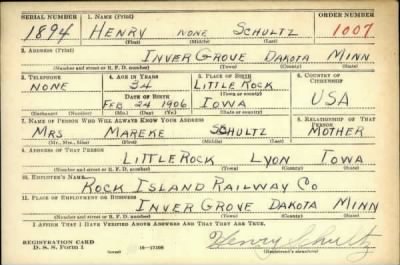 SERIAL NUMBER 1. NAME (Print) ORDER NUMBER
1894 HENRY NONE SCHULTZ 1007
(First) (Middle) (Last)
2. ADDRESS (Print)
INVER GROVE DAKOTA MINN
(Number and street or R. F. D. number) (Town) (County) (State)
3. TELEPHONE 4. AGE IN YEARS 5. PLACE OF BIRTH 6. COUNTRY OF CITIZENSHIP
NONE 34 LITTLE ROCK
DATE OF BIRTH (Town or county)
FEB 24 1906 IOWA USA
(Exchange) (Number) (Mo.) (Day) (Yr.) (State or country)
7. NAME OF PERSON WHO WILL ALWAYS KNOW YOUR ADDRESS 8. RELATIONSHIP OF THAT PERSON
MRS MAREKE SCHULTZ MOTHER
(Mr., Mrs., Miss) (First) (Middle) (Last)
9. ADDRESS OF THAT PERSON
LITTLE ROCK LYON IOWA
(Number and street or R. F. D. number) (Town) (County) (State)
10. EMPLOYER'S NAME
ROCK ISLAND RAILWAY CO
11. PLACE OF EMPLOYMENT OR BUSINESS
INVER GROVE DAKOTA MINN
(Number and street or R. F. D. number) (Town) (County) (State)
I AFFIRM THAT I HAVE VERIFIED ABOVE ANSWERS AND THAT THEY ARE TRUE.
REGISTRATION CARD
D. S. S. Form 1 (over) 16—17105 Henry Schultz
(Registrant's signature)